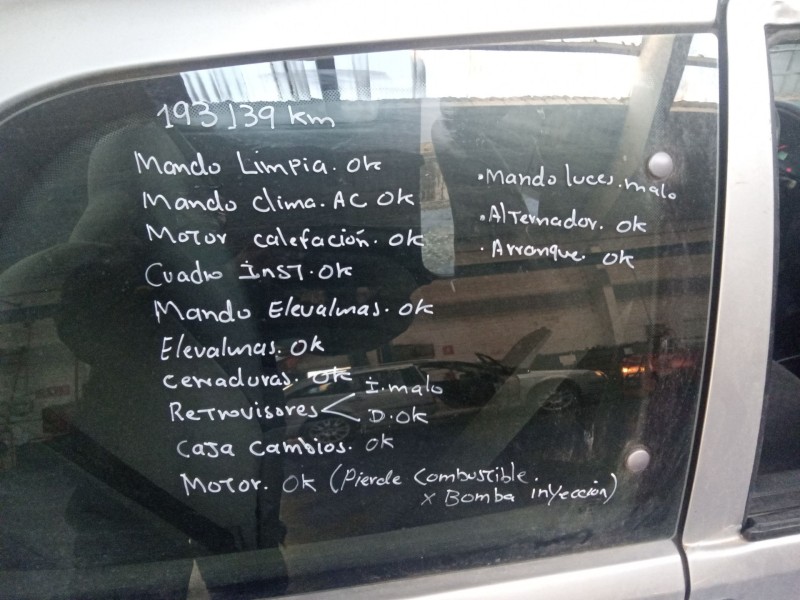 193139 km
Mando Limpia. ok
Mando clima. AC ok
Motor calefación. ok
Cuadro INST. ok
Mando Elevalunas. ok
Elevalunas. ok
cerraduras. ok
Retrovisores < I. malo
D. ok
Caja Cambios. ok
Motor. ok (Pierde Combustible.
x Bomba inyección)
• Mando luces. malo
• Alternador. ok
• Arranque. ok